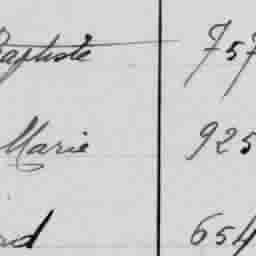 Baptiste 757
Marie 925
rd 654